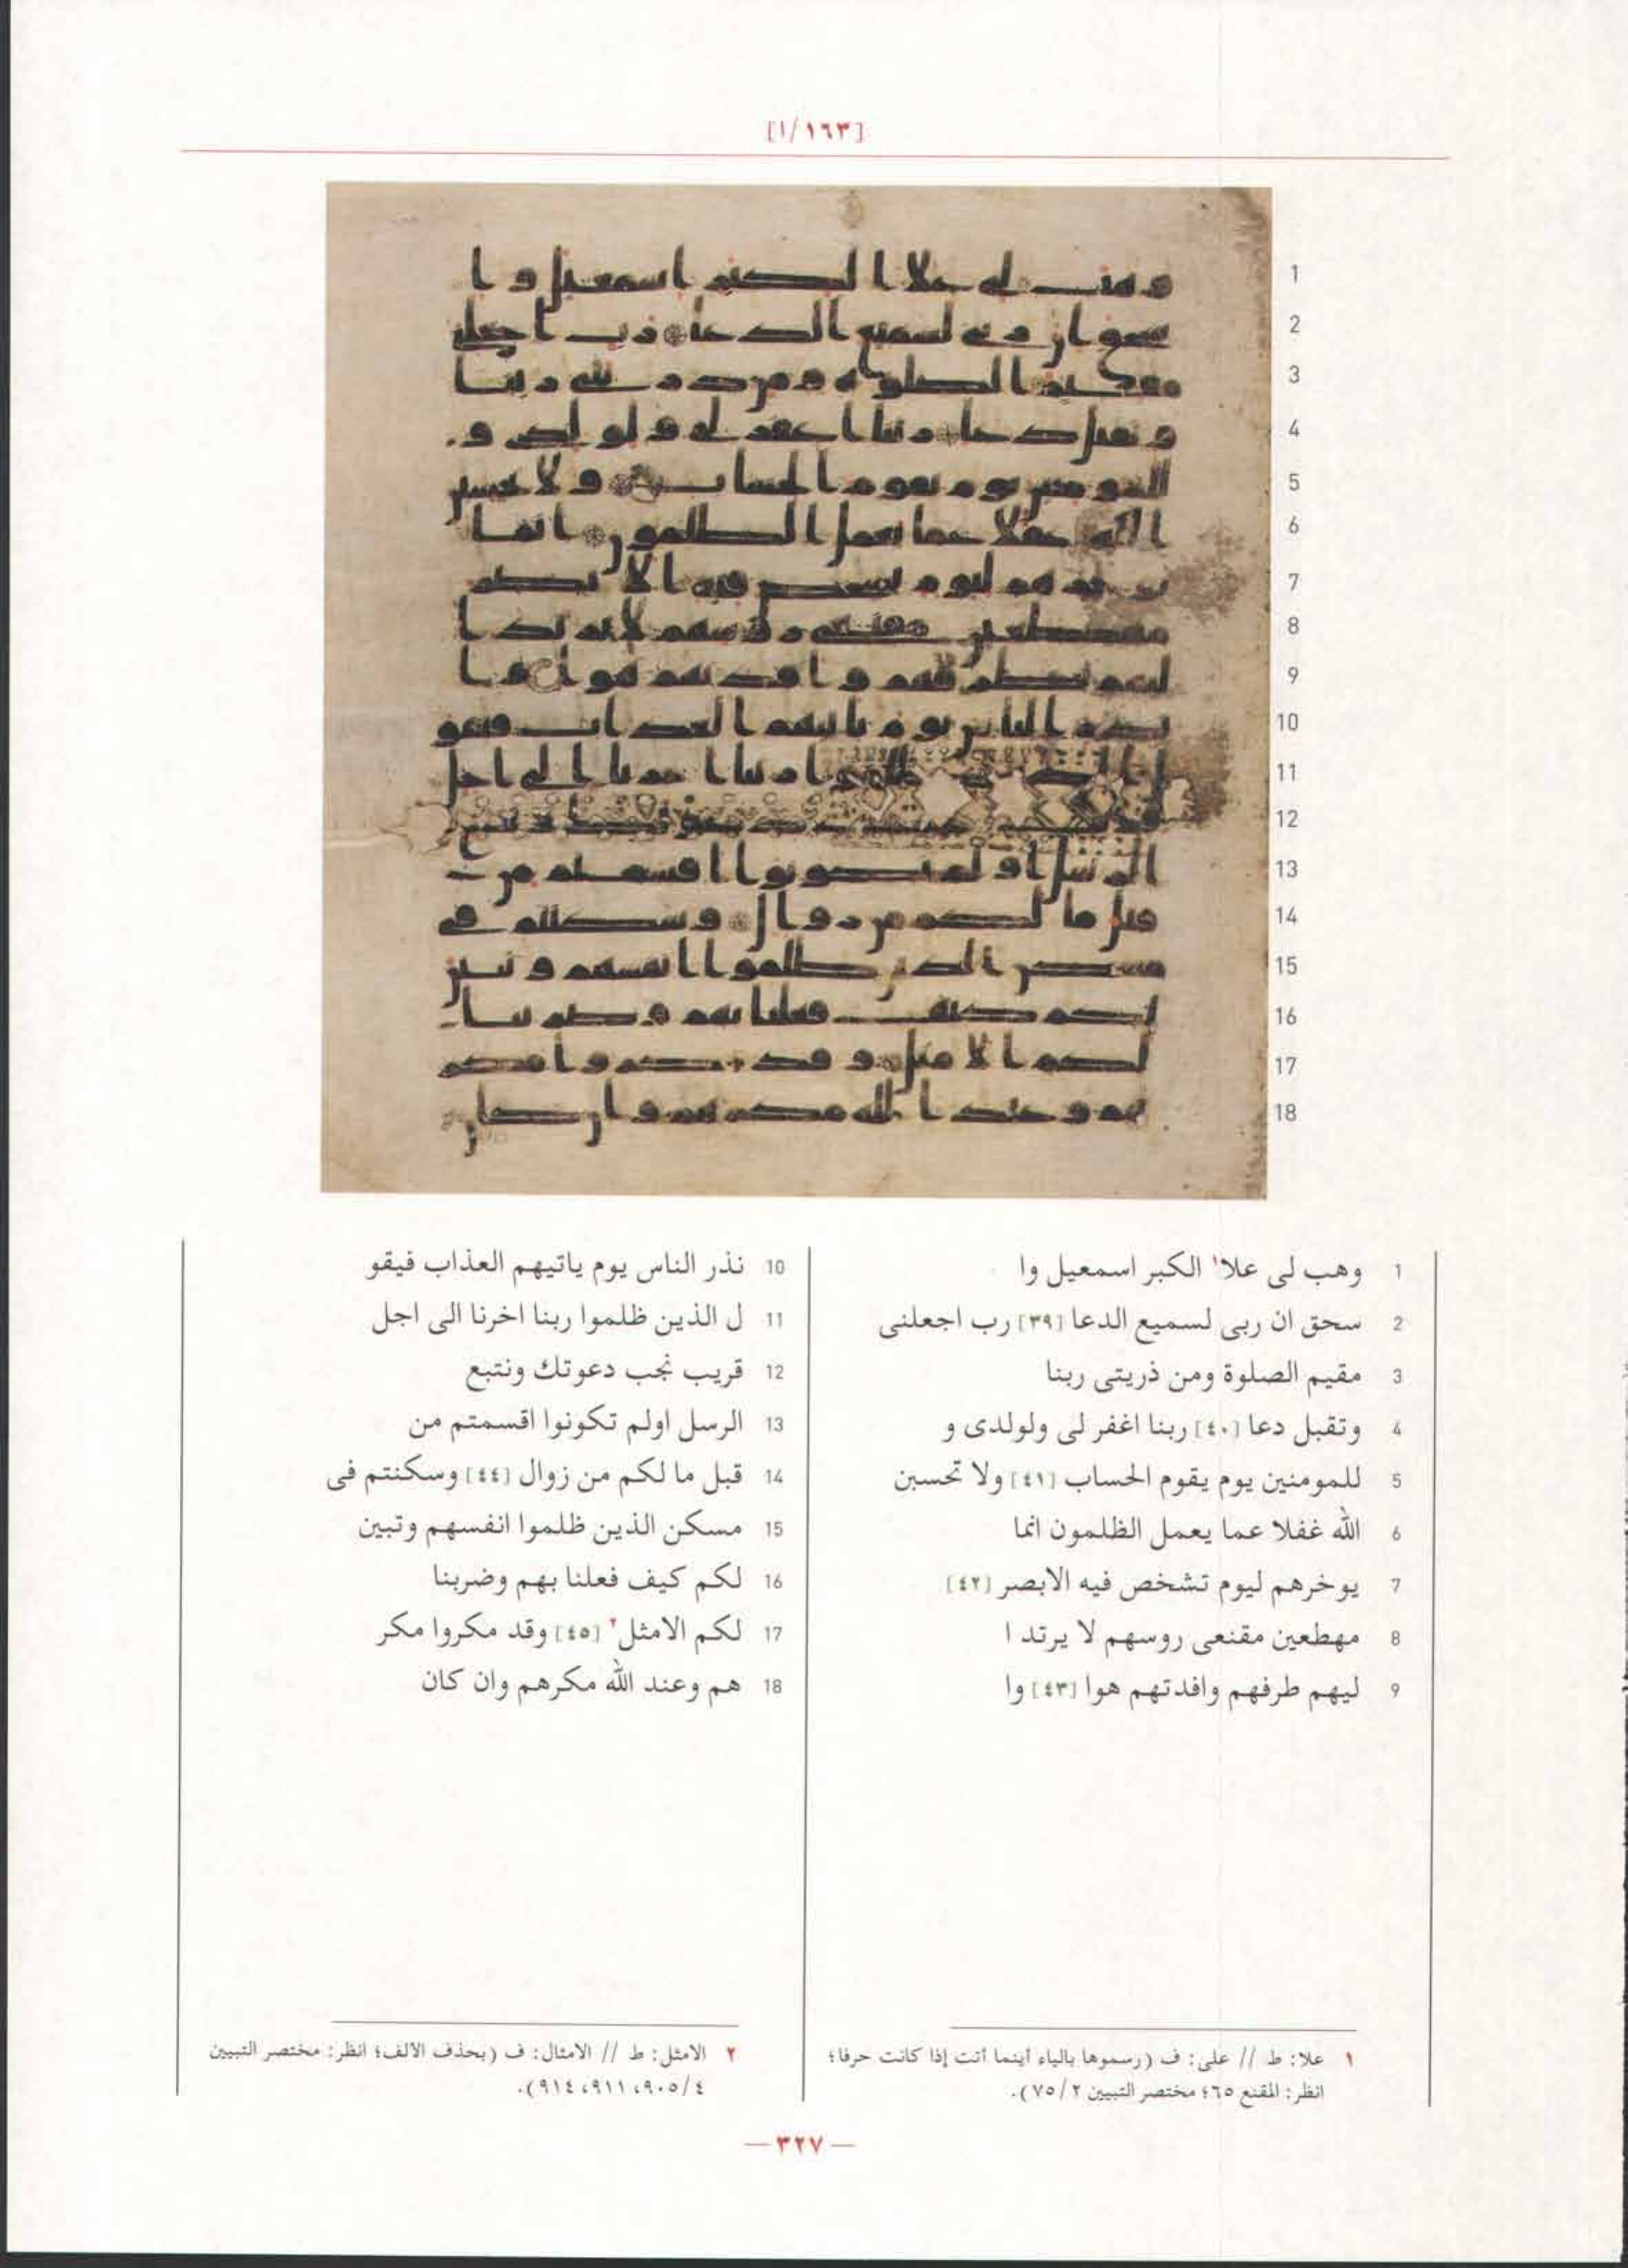 [١/١٦٣]
1
2
3
4
5
6
7
8
9
10
11
12
13
14
15
16
17
18
1 وهب لى علا١ الكبر اسمعيل وا
2 سحق ان ربى لسميع الدعا [٣٩] رب اجعلنى
3 مقيم الصلوة ومن ذريتى ربنا
4 وتقبل دعا [٤٠] ربنا اغفر لى ولولدى و
5 للمومنين يوم يقوم الحساب [٤١] ولا تحسبن
6 الله غفلا عما يعمل الظلمون انما
7 يوخرهم ليوم تشخص فيه الابصر [٤٢]
8 مهطعين مقنعى روسهم لا يرتد ا
9 ليهم طرفهم وافدتهم هوا [٤٣] وا
10 نذر الناس يوم ياتيهم العذاب فيقو
11 ل الذين ظلموا ربنا اخرنا الى اجل
12 قريب نجب دعوتك ونتبع
13 الرسل اولم تكونوا اقسمتم من
14 قبل ما لكم من زوال [٤٤] وسكنتم فى
15 مسكن الذين ظلموا انفسهم وتبين
16 لكم كيف فعلنا بهم وضربنا
17 لكم الامثل٢ [٤٥] وقد مكروا مكر
18 هم وعند الله مكرهم وان كان
١ علا: ط // على: ف (رسموها بالياء أينما أتت إذا كانت حرفا؛
انظر: المقنع ٦٥؛ مختصر التبيين ٢/ ٧٥).
٢ الامثل: ط // الامثال: ف (بحذف الالف؛ انظر: مختصر التبيين
٤/ ٩٠٥، ٩١١، ٩١٤).
— ٣٢٧ —